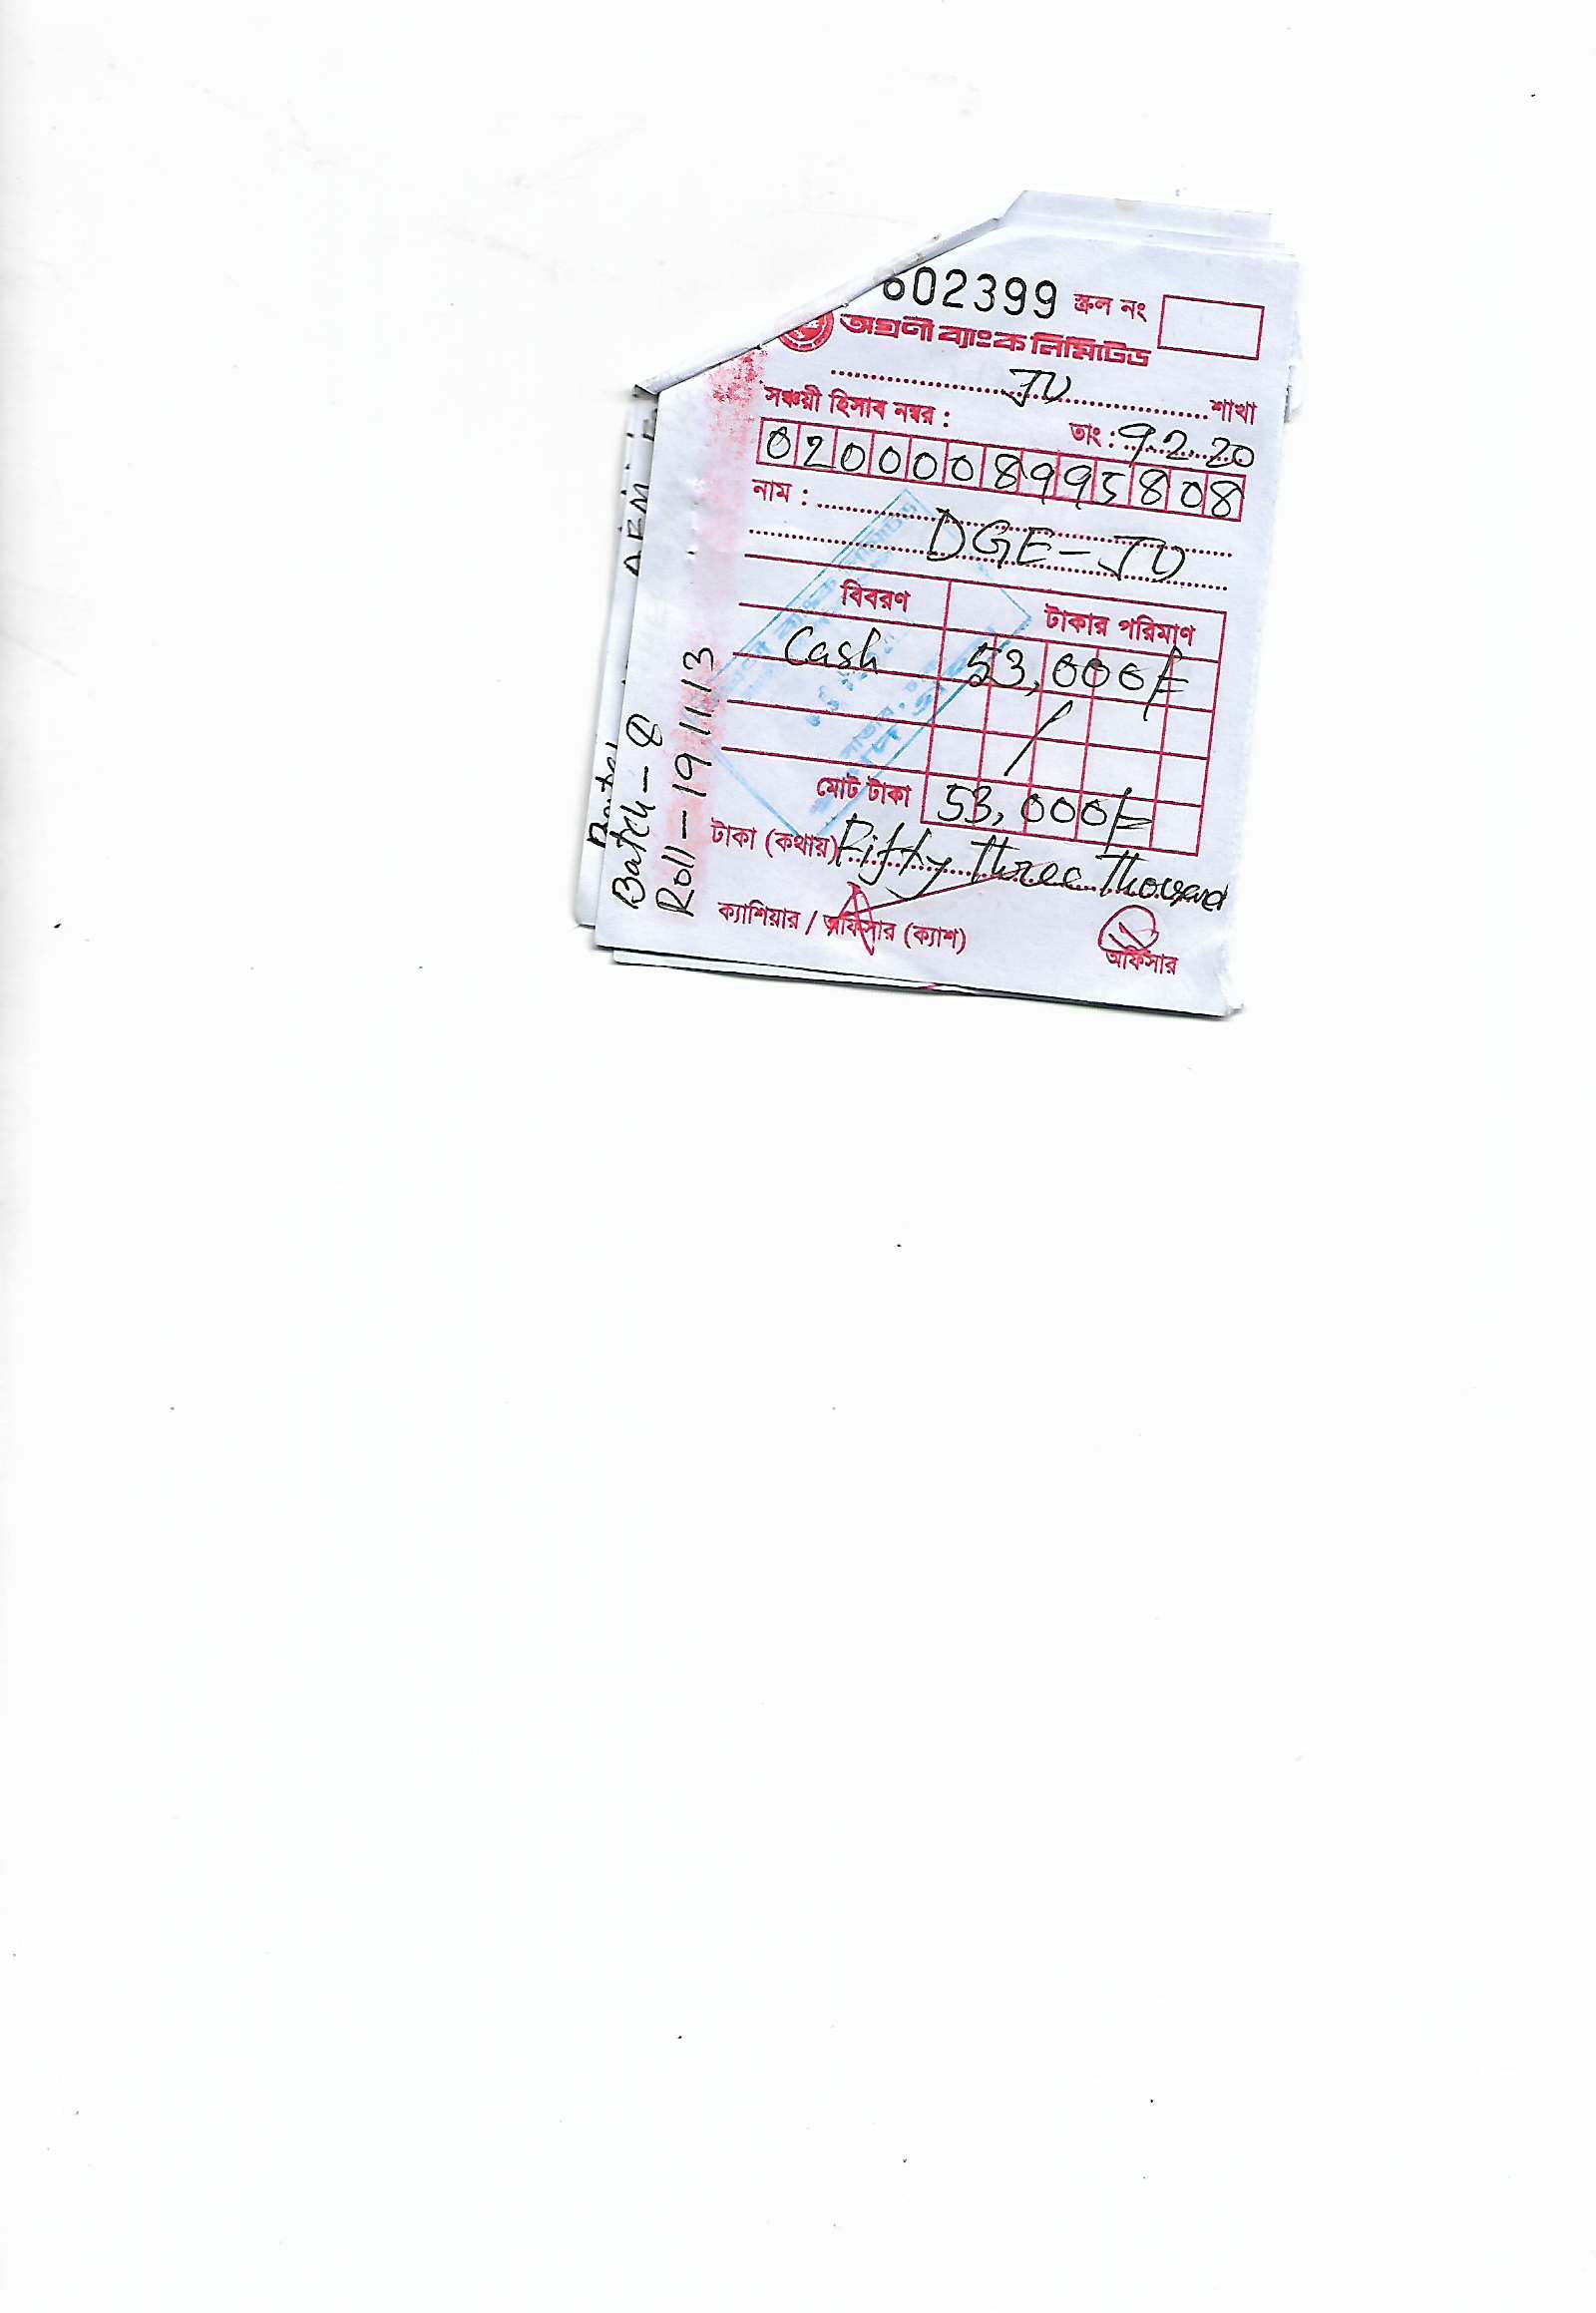 602399 স্ক্রল নং
অগ্রণী ব্যাংক লিমিটেড
JU শাখা
সঞ্চয়ী হিসাব নম্বর :
তাং : 9.2.20
0200008995808
নাম :
DGE-JU
বিবরণ টাকার পরিমাণ
Cash 53,000/=
মোট টাকা 53,000/=
টাকা (কথায়) Fifty Three Thousand
ক্যাশিয়ার / অফিসার (ক্যাশ) অফিসার
Batch-8
Roll-191113